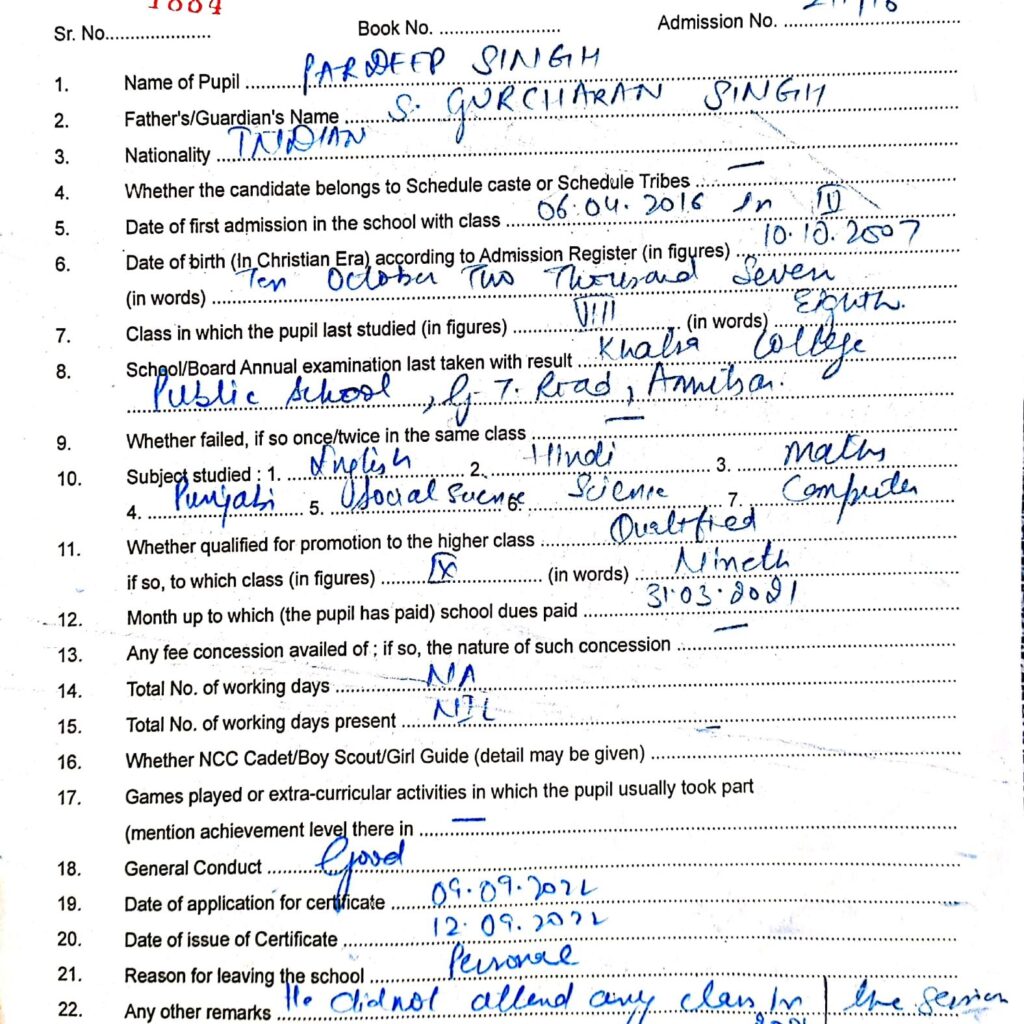 1884
Sr. No.....................
Book No. ..........................
Admission No. ......................................
1. Name of Pupil PARDEEP SINGH
2. Father's/Guardian's Name S. GURCHARAN SINGH
3. Nationality INDIAN
4. Whether the candidate belongs to Schedule caste or Schedule Tribes —
5. Date of first admission in the school with class 06.04.2016 In
6. Date of birth (In Christian Era) according to Admission Register (in figures) 10.10.2007
(in words) Ten October Two Thousand Seven
7. Class in which the pupil last studied (in figures) VIII (in words) Eighth.
8. School/Board Annual examination last taken with result Khalsa College
Public School, G.T. Road, Amritsar.
9. Whether failed, if so once/twice in the same class —
10. Subject studied : 1. English 2. Hindi 3. Maths
4. Punjabi 5. Social Science 6. Science 7. Computer
11. Whether qualified for promotion to the higher class Qualified
if so, to which class (in figures) IX (in words) Nineth
12. Month up to which (the pupil has paid) school dues paid 31.03.2021
13. Any fee concession availed of ; if so, the nature of such concession —
14. Total No. of working days NA
15. Total No. of working days present NIL
16. Whether NCC Cadet/Boy Scout/Girl Guide (detail may be given) —
17. Games played or extra-curricular activities in which the pupil usually took part
(mention achievement level there in —
18. General Conduct Good
19. Date of application for certificate 09.09.2022
20. Date of issue of Certificate 12.09.2022
21. Reason for leaving the school Personal
22. Any other remarks He did not attend any class In the session